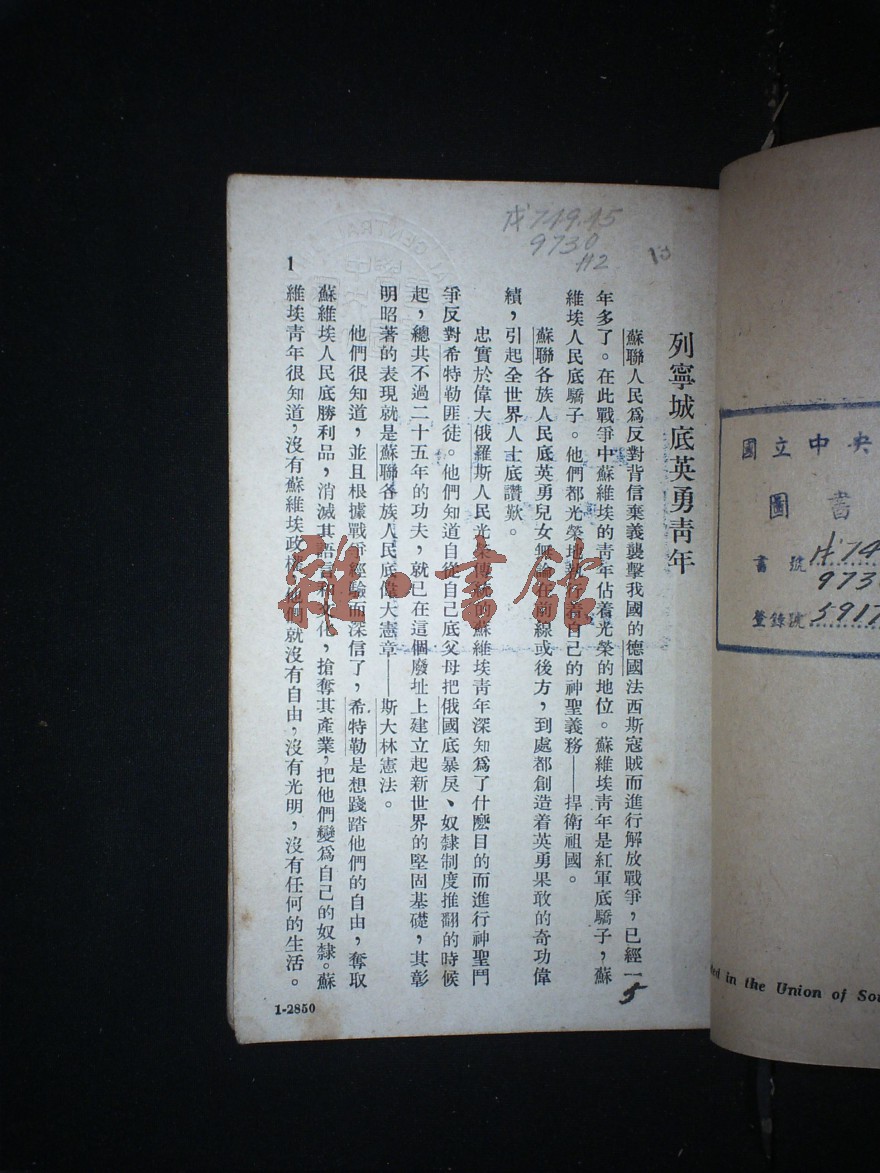 列寧城底英勇靑年
蘇聯人民爲反對背信棄義襲擊我國的德國法西斯寇賊而進行解放戰爭，已經一
年多了。在此戰爭中蘇維埃的靑年佔着光榮的地位。蘇維埃靑年是紅軍底驕子，蘇
維埃人民底驕子。他們都光榮地執行着自己的神聖義務——捍衛祖國。
蘇聯各族人民底英勇兒女無論在前線或後方，到處都創造着英勇果敢的奇功偉
績，引起全世界人士底讚歎。
忠實於偉大俄羅斯人民光榮傳統的蘇維埃靑年深知爲了什麽目的而進行神聖鬥
爭反對希特勒匪徒。他們知道自從自己底父母把俄國底暴戾、奴隸制度推翻的時候
起，總共不過二十五年的功夫，就已在這個廢址上建立起新世界的堅固基礎，其彰
明昭著的表現就是蘇聯各族人民底偉大憲章——斯大林憲法。
他們很知道，並且根據戰爭經驗而深信了，希特勒是想踐踏他們的自由，奪取
蘇維埃人民底勝利品，消滅其語言和文化，搶奪其產業，把他們變爲自己的奴隸。蘇
維埃靑年很知道，沒有蘇維埃政權，他們就沒有自由，沒有光明，沒有任何的生活。
1
1-2850
749.45
9730
H2
13
5
雅·書館
國立中央
圖書
書號 74
973
登錄號 5917
in the Union of So